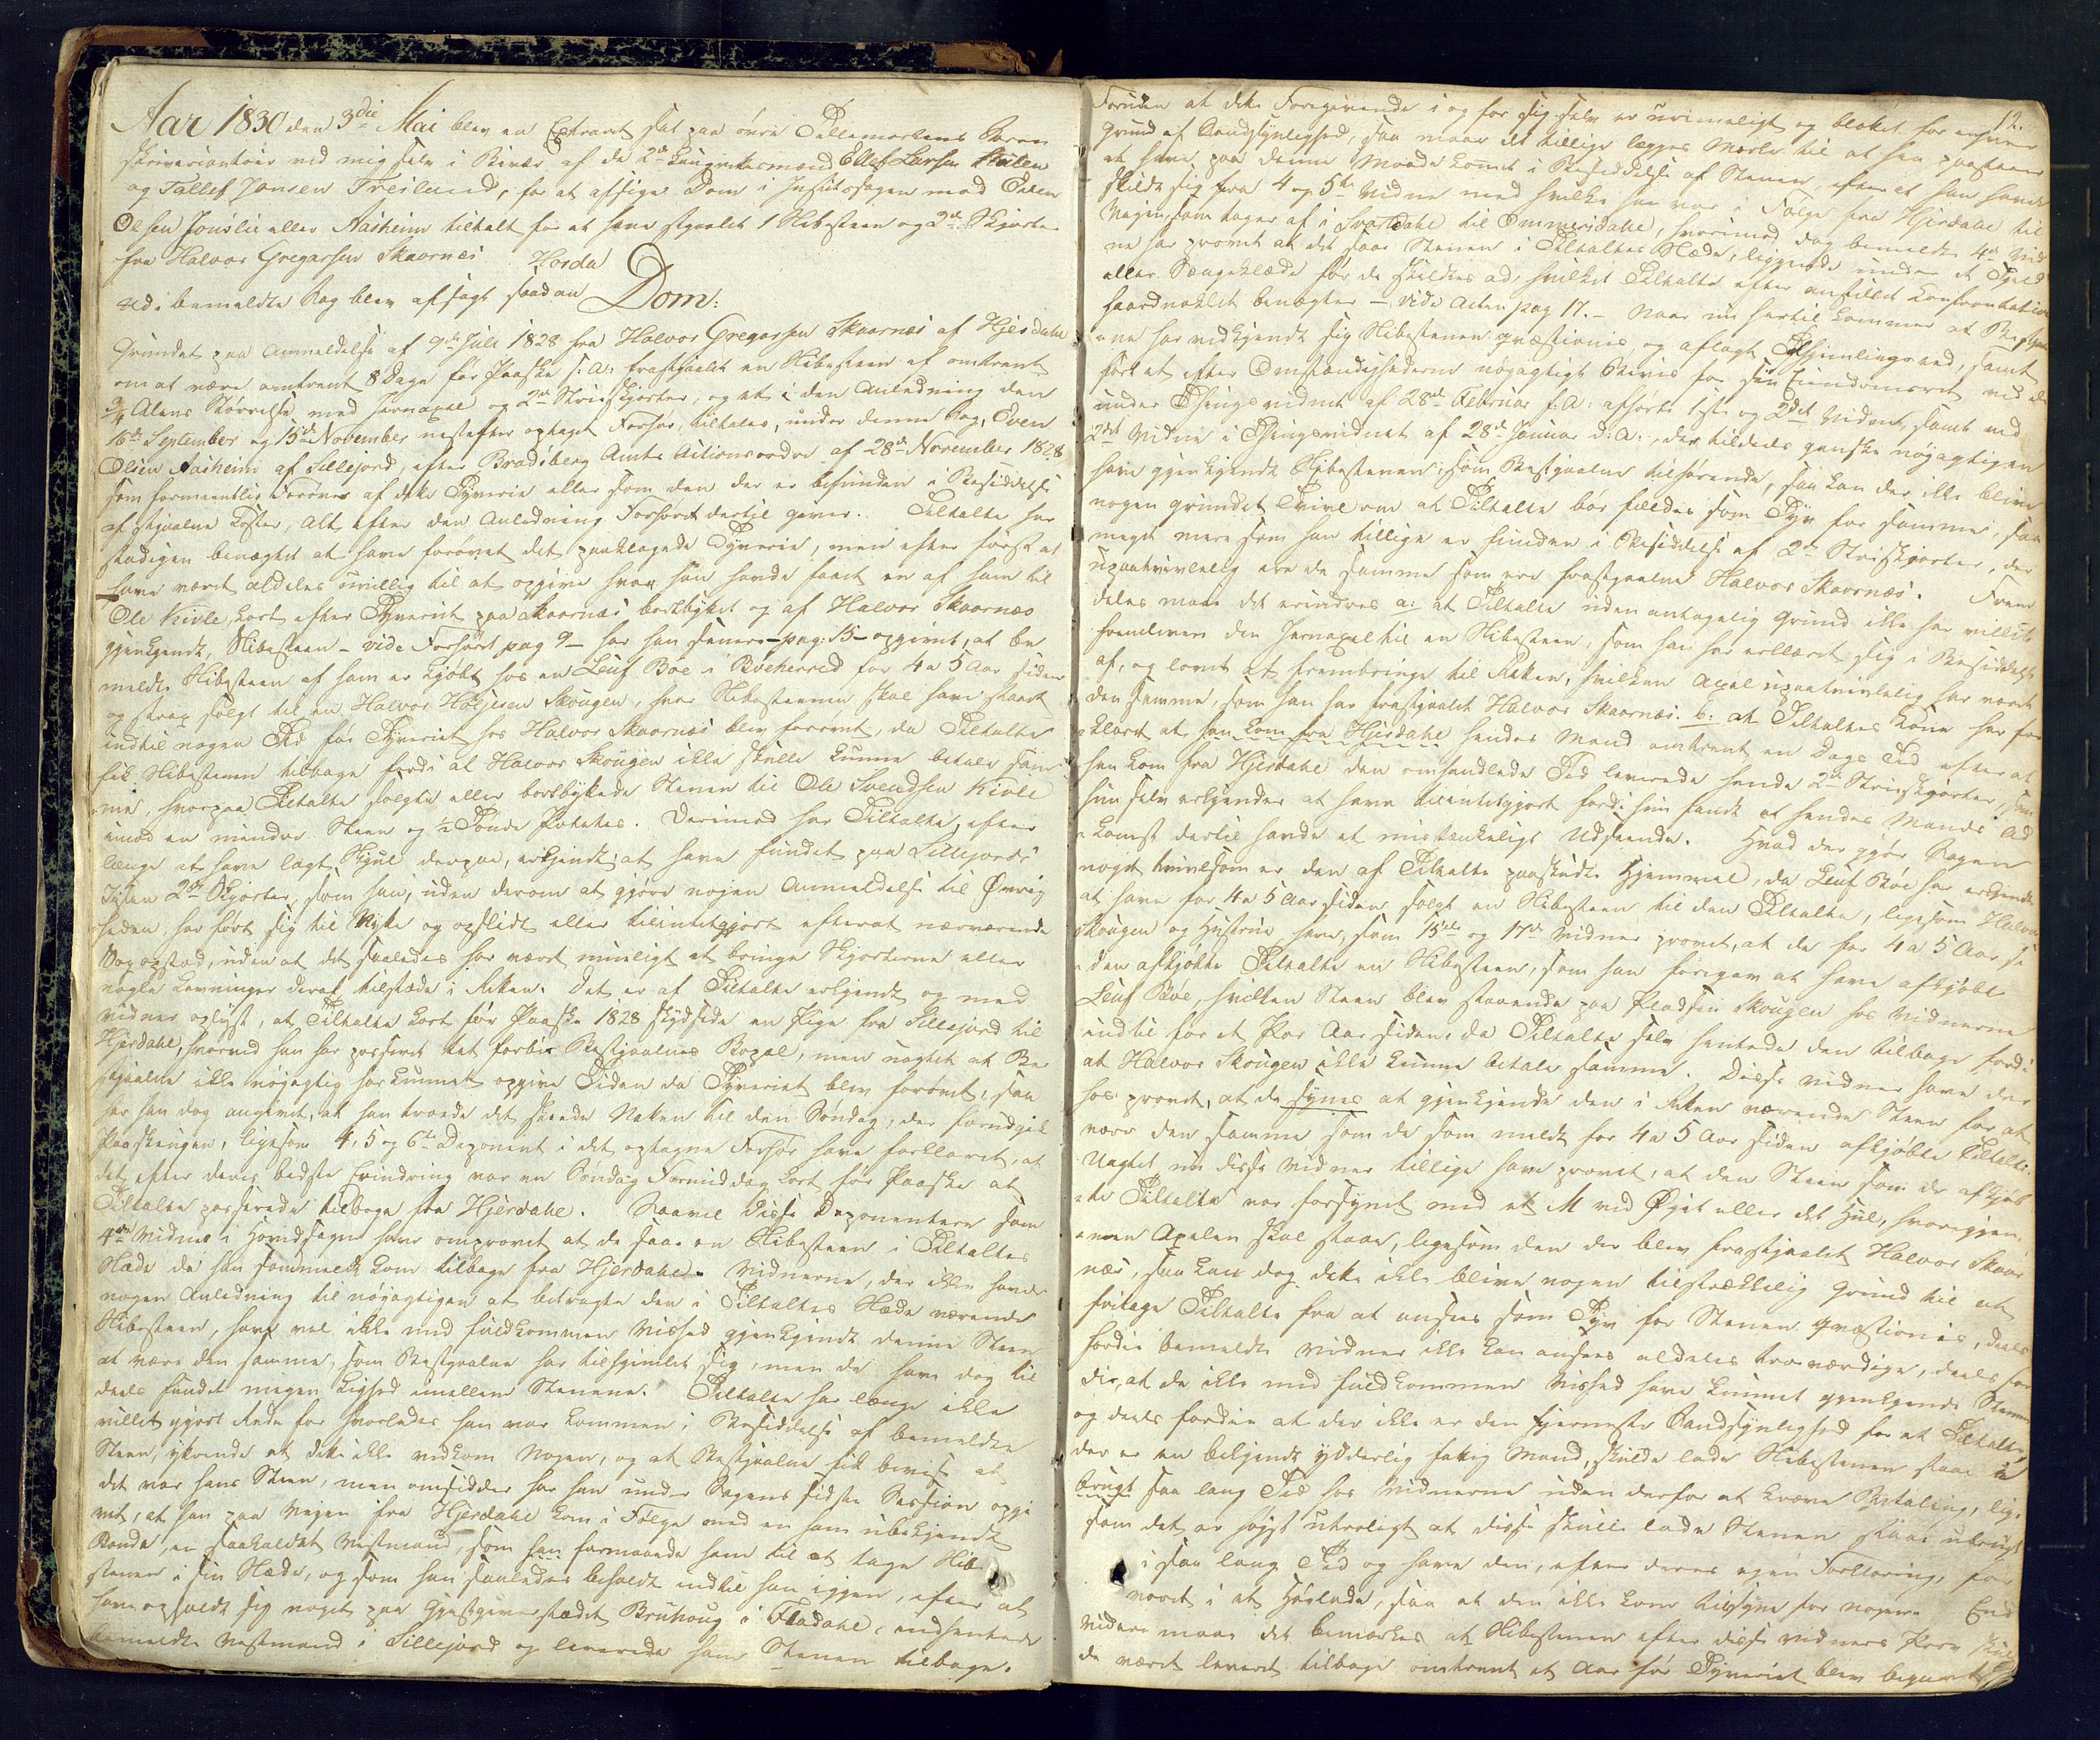 Aar 1830 den 3die Mai blev en Extraret sat paa øvre Tellemarkens Soren-
skrivercontoir ved mig selv i Bivær af de 2de Laugrettesmænd Ellef Larsen
og Tallef Jonsen Treiland, for at afsige Dom i Justitssagen mod Even
Olsen Jønslie eller Aasheim tiltalt for at have stjaalet 1 Hibesteen og 2de Skjorter
fra Halvor Gregarsen Skaarnæs. Hvorda
udi bemeldte Sag blev afsagt saadan Dom:
Grundet paa Anmeldelse af 9de Juli 1828 fra Halvor Gregarsen Skaarnæs af Hjerdahl
om at være omtrent 8 Dage før Paaske s: A: frastjaalet en Hibesteen af omtrent
3/4 Alens Størrelse med Jernaxel og 2de Striskjorter, og at i den Anledning den
16de September og 15de November næstefter optaget Forhør, tiltales, under denne Sag, Even
Olsen Aasheim af Sillejord, efter Bradsberg Amts Actionsordre af 28de November 1828
som formeentlig Forøver af dette Tyverie eller som den der er befunden i Besiddelse
af stjaalne Koster, alt efter den Anledning Forhøret dertil giver. Tiltalte har
stadigen benægtet at have forøvet det paaklagede Tyverie, men efter først at
have været aldeles uvillig til at opgive hvor han havde faaet en af ham til
Ole Kivle, kort efter Tyveriet paa Skaarnæs bortbyttet og af Halvor Skaarnæs
gjenkjendt, Hibesteen – vide Forhøret pag 9 – har han senere – pag: 15 – opgivet, at be-
meldte Hibesteen af ham er kjøbt hos en Leuf Bøe i Bøeherred for 4 a 5 Aar siden
og strax solgt til en Halvor Høljesen Skougen, hvor Hibesteenen skal have staaet
indtil nogen Tid før Tyveriet hos Halvor Skaarnæs blev forøvet, da Tiltalte
fik Hibestenen tilbage fordi at Halvor Skougen ikke skulle kunne betale sam-
me, hvorpaa Tiltalte solgte eller bortbyttede Stenen til Ole Svendsen Kivle
imod en mindre Steen og 1/2 Tønde Potetes. Derimod har Tiltalte, efter
længe at have lagt Skjul derpaa, erkjendt, at have fundet paa Sillejords
Iisen 2de Skjorter, som han, uden derom at gjøre nogen Anmeldelse til Øvrig-
heden, har ført sig til Nytte og opslidt eller tilintetgjort efterat nærværende
Sag opstod, uden at det saaledes har været mueligt at bringe Skjorterne eller
nogle Levninger deraf tilstæde i Retten. Det er af Tiltalte erkjendt og med
Vidner oplyst, at Tiltalte kort før Paaske 1828 skydsede en Pige fra Sillejord til
Hjerdahl, hvorved han har passeret tæt forbie Bestjaalnes Bopæl, men uagtet at Be-
stjaalne ikke nøjagtig har kunnet opgive Tiden da Tyveriet blev forøvet, saa
har han dog angivet, at han troede det skeede Natten til den Søndag, der forudgik
Paaskeugen, ligesom 4, 5 og 6te Deponent i det optagne Forhør have forklaret, at
det efter deres bedste Erindring var en Søndag Formiddag kort før Paaske at
Tiltalte passerede tilbage fra Hjerdahl. Saavel disse Deponentere som
4de Vidne i Hovedsagen have omprovet at de saae en Hibesteen i Tiltaltes
Slæde da han sommeldt kom tilbage fra Hjerdahl. Vidnerne, der ikke havde
nogen Anledning til nøjagtigen at betragte den i Tiltaltes Slæde værende
Hibesteen, have vel ikke med fuldkommen Vished gjenkjendt denne Steen
at være den samme, som Bestjaalne har tilhjemlet sig, men de have dog til-
deels fundet megen Lighed imellem Stenene. Tiltalte har længe ikke
villet gjort Rede for hvorledes han var kommen i Besiddelse af bemeldte
Steen, ytrende at dette ikke vedkom Nogen, og at Bestjaalne fik bevise at
det var hans Steen, men omsidder har han under Sagens sidste Session opgi-
vet, at han paa Vejen fra Hjerdahl kom i Følge med en ham ubekjendt
Bonde, en saakaldet Vestmand, som han formaaede ham til at tage Hibe-
stenen i sin Slæde, og som han saaledes beholdt indtil han igjen, efter at
have opholdt sig noget paa Gjestgiverstædet Bruhoug i Fladahl, indhentede
bemeldte Vestmand i Sillejord og leverede ham Stenen tilbage.
12.
Foruden at dette Foregivende i og for sig selv er urimeligt og blottet for enhver
Grund af Sandsynlighed, saa maae det tillige lægges Mærke til at han paastaaer
at have paa denne Maade kommet i Besiddelse af Stenen, efterat han havde
skildt sig fra 4 og 5te Vidne med hvilke han var i Følge fra Hjerdahl til
Vejen, som tager af i Svartdahl til Ommesdahl, hvorimod dog bemeldte 4de Vid-
ne har provet at det saae Stenen i Tiltaltes Slæde, liggende under et Spred
eller Sengeklæde før de skildtes ad, hvilket Tiltalte efter anstillet Confrontation
haardnaklet benægter – vide Acten pag 17. – Naar nu hertil kommer at Bestjaal-
ne har vedkjendt sig Hibestenen qvæstionis og aflagt Tilhjemlingsed, samt
ført et efter Omstændighederne nøjagtigt Beviis for sin Eiendomsret ved de
under Thingsvidnet af 28de Februar s: A: afhørte 1ste og 2det Vidner, samt ved
2det Vidne i Thingsvidnet af 28de Januar d: A:, der tildeels ganske nøjagtigen
have gjenkjendt Hibestenen som Bestjaalne tilhørende, saa kan der ikke blive
nogen grundet Tvivl om at Tiltalte bør fældes som Tyv for samme, saa
meget mere som han tillige er funden i Besiddelse af 2de Striskjorter, der
upaatvivlelig ere de samme som ere frastjaalne Halvor Skaarnæs. Frem-
deles maae det erindres a: at Tiltalte uden antagelig Grund ikke har villet
fremlevere den Jernaxel til en Hibesteen, som han har erklæret sig i Besiddelse
af, og lovet at frembringe til Retten, hvilken Axel upaatvivlelig har været
den samme, som han har frastjaalet Halvor Skaarnæs. b: at Tiltaltes Kone har for-
klaret at han kom fra Hjerdahl hendes Mand omtrent en Dags Tid efterat
han kom fra Hjerdahl den omhandlede Tid leverede hende 2de Striskjorter, som
hun selv erkjender at have tilintetgjort fordi hun fandt at hendes Mands Ad-
komst dertil havde et mistænkeligt Udseende. Hvad der gjør Sagen
noget tvivlsom er den af Tiltalte paaskudte Hjemmel, da Leuf Bøe har erkjendt
at have for 4 a 5 Aar siden solgt en Hibesteen til den Tiltalte, ligesom Halvor
Skougen og Hustrue have, som 15de og 17de Vidner provet, at de for 4 a 5 Aar si-
den afkjøbte Tiltalte en Hibesteen, som han foregav at have afkjøbt
Leuf Bøe, hvilken Steen blev staaende paa Pladsen Skougen hos Vidnerne
indtil for et Par Aar siden, da Tiltalte selv hentede den tilbage fordi
at Halvor Skougen ikke kunne betale samme. Disse Vidner have der-
hos provet, at de synes at gjenkjende den i Retten værende Steen for at
være den samme som de som meldt for 4 a 5 Aar siden afkjøbte Tiltalte.
Uagtet nu disse Vidner tillige have provet, at den Steen som de afkjøb-
te Tiltalte var forsynet med et M ved Øjet eller det Hul, hvorigjen-
nem Axelen skal staae, ligesom den der blev frastjaalet Halvor Skaar-
næs, saa kan dog dette ikke blive nogen tilstrækkelig Grund til at
fritage Tiltalte fra at ansees som Tyv for Stenen qvæstionis, deels
fordi bemeldte Vidner ikke kan ansees aldeles troværdige, deels for-
di, at de ikke med fuldkommen Vished have kunnet gjenkjende Stenen
og deels fordie at der ikke er den fjerneste Sandsynlighed for at Tiltalte,
der er en bekjendt ydderlig fattig Mand, skulde lade Hibestenen staae u-
brugt saa lang Tid hos Vidnerne uden derfor at kræve Betaling, lige-
som det er høist utroligt at disse skulle lade Stenen staae ubrugt
i saa lang Tid og have den, efter deres egen Forklaring, for-
varet i et Høelade, saa at den ikke kom tilsyne for nogen. End-
videre maae det bemærkes at Hibestenen efter disse Vidners Prov skul-
de været leveret tilbage omtrent et Aar før Tyveriet blev begaaet